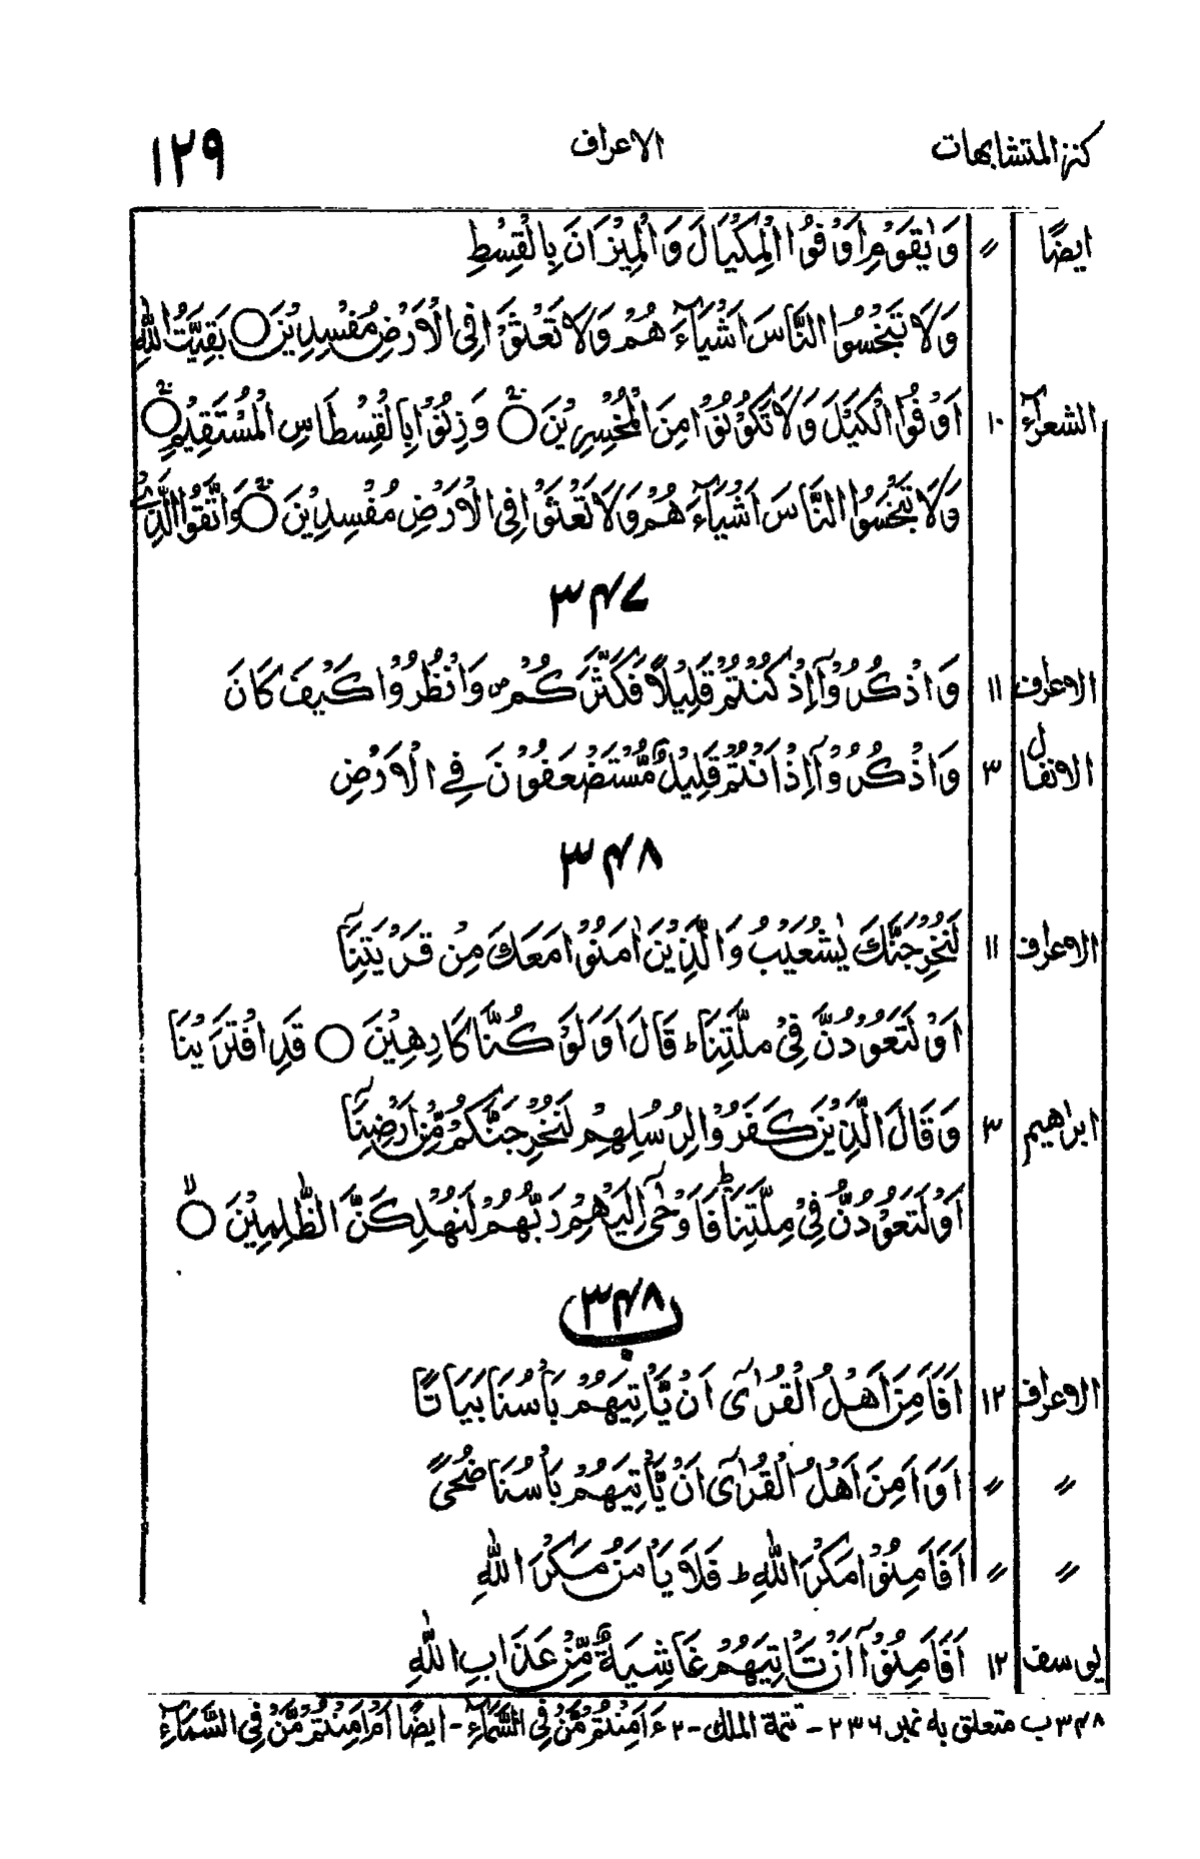 كنز المتشابهات الاعراف ١٢٩
ايضًا 〃 وَيٰقَوْمِ اَوْفُوا الْمِكْيَالَ وَالْمِيْزَانَ بِالْقِسْطِ
وَلَا تَبْخَسُوا النَّاسَ اَشْيَآءَهُمْ وَلَا تَعْثَوْا فِى الْاَرْضِ مُفْسِدِيْنَ ○ بَقِيَّتُ اللّٰهِ
الشعرآء ١٠ اَوْفُوا الْكَيْلَ وَلَا تَكُوْنُوْا مِنَ الْمُخْسِرِيْنَ ○ وَزِنُوْا بِالْقِسْطَاسِ الْمُسْتَقِيْمِ ○
وَلَا تَبْخَسُوا النَّاسَ اَشْيَآءَهُمْ وَلَا تَعْثَوْا فِى الْاَرْضِ مُفْسِدِيْنَ ○ وَاتَّقُوا الَّذِىْ
٣٤٧
الاعراف ١١ وَاذْكُرُوْٓا اِذْ كُنْتُمْ قَلِيْلًا فَكَثَّرَكُمْ ص وَانْظُرُوْا كَيْفَ كَانَ
الانفال ٣ وَاذْكُرُوْٓا اِذْ اَنْتُمْ قَلِيْلٌ مُّسْتَضْعَفُوْنَ فِى الْاَرْضِ
٣٤٨
الاعراف ١١ لَنُخْرِجَنَّكَ يٰشُعَيْبُ وَالَّذِيْنَ اٰمَنُوْا مَعَكَ مِنْ قَرْيَتِنَآ
اَوْ لَتَعُوْدُنَّ فِىْ مِلَّتِنَا ط قَالَ اَوَلَوْ كُنَّا كَارِهِيْنَ ○ قَدِ افْتَرَيْنَا
ابراهيم ٣ وَقَالَ الَّذِيْنَ كَفَرُوْا لِرُسُلِهِمْ لَنُخْرِجَنَّكُمْ مِّنْ اَرْضِنَآ
اَوْ لَتَعُوْدُنَّ فِىْ مِلَّتِنَا ط فَاَوْحٰٓى اِلَيْهِمْ رَبُّهُمْ لَنُهْلِكَنَّ الظّٰلِمِيْنَ ○
٣٤٨ ب
الاعراف ١٢ اَفَاَمِنَ اَهْلُ الْقُرٰٓى اَنْ يَّاْتِيَهُمْ بَاْسُنَا بَيَاتًا
〃 〃 اَوَاَمِنَ اَهْلُ الْقُرٰٓى اَنْ يَّاْتِيَهُمْ بَاْسُنَا ضُحًى
〃 〃 اَفَاَمِنُوْا مَكْرَ اللّٰهِ ط فَلَا يَاْمَنُ مَكْرَ اللّٰهِ
يوسف ١٢ اَفَاَمِنُوْٓا اَنْ تَاْتِيَهُمْ غَاشِيَةٌ مِّنْ عَذَابِ اللّٰهِ
٣٤٨ ب متعلق به نمبر ٢٣٦ - تتمة الملك - ٢ ءَاَمِنْتُمْ مَّنْ فِى السَّمَآءِ - ايضًا اَمْ اَمِنْتُمْ مَّنْ فِى السَّمَآءِ